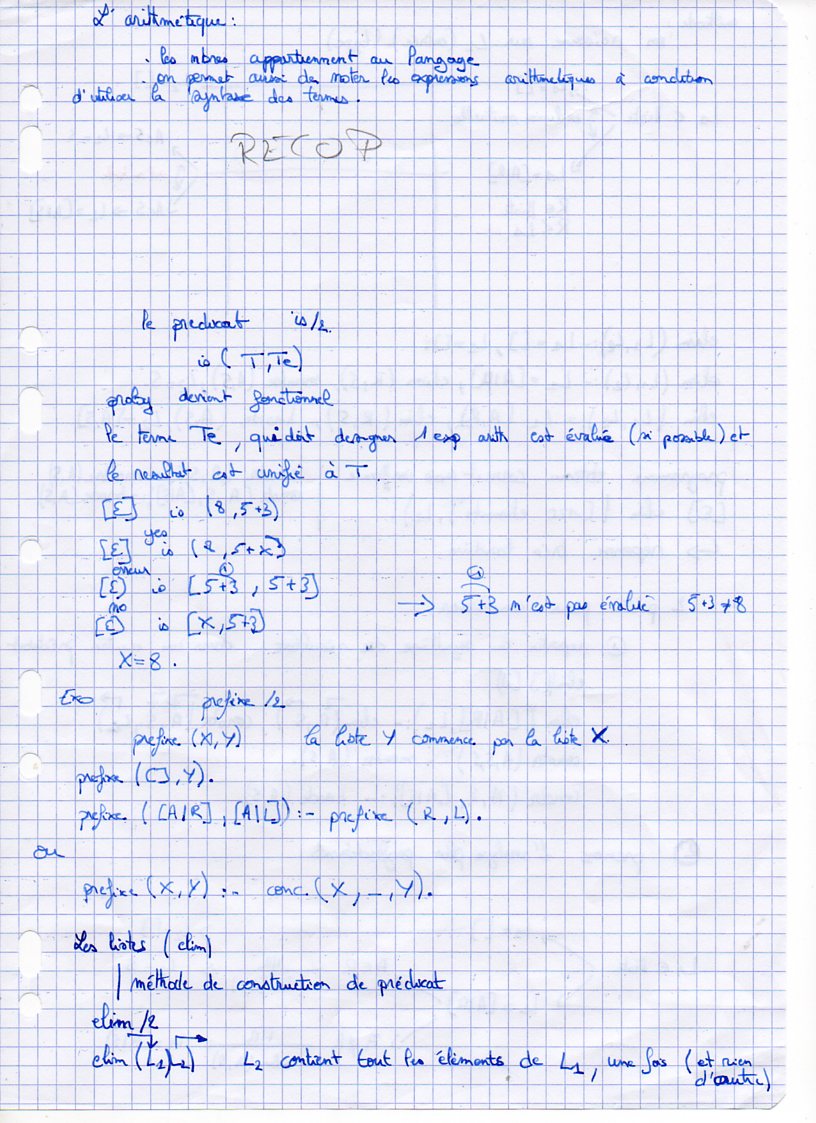 L'arithmétique :
. les nbres appartiennent au langage
. on permet aussi de noter les expressions arithmetiques à condition
d'utiliser la syntaxe des termes.
RECOP
le predicat is/2.
is ( T,Te)
prolog devient fonctionnel
le terme Te, qui doit designer 1 exp arith est évalué (si possible) et
le resultat est unifié à T.
[E] is (8,5+3)
yes
[E] is (2,5+X)
erreur
[E] is [5+3, 5+3]
①
no
① 5+3 n'est pas évalué 5+3≠8
[E] is [X,5+3)
X=8.
Exo prefixe /2
prefixe (X,Y) la liste Y commence par la liste X
prefixe ([],Y).
prefixe ([A/R],[A|L]) :- prefixe (R,L).
ou
prefixe (X,Y) :- conc (X,_,Y).
Les listes (elim)
méthode de construction de prédicat
elim /2
elim (L1,L2) L2 contient tout les éléments de L1, une fois (et rien
d'autre)